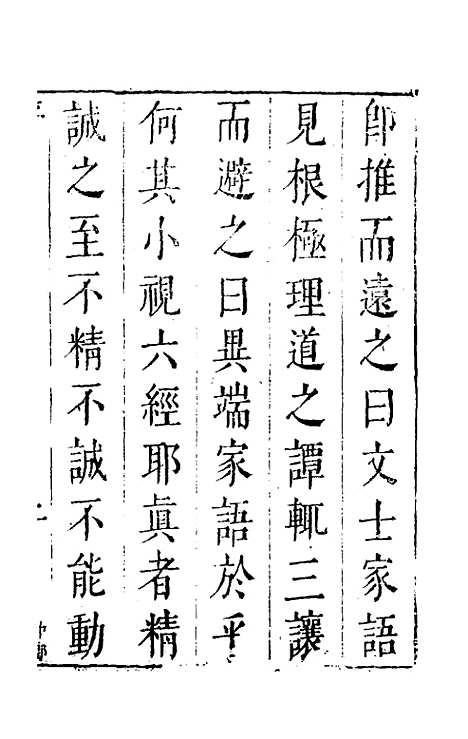 卽推而遠之曰文士家語
見根極理道之譚輒三讓
而避之曰異端家語於乎
何其小視六經耶眞者精
誠之至不精不誠不能動